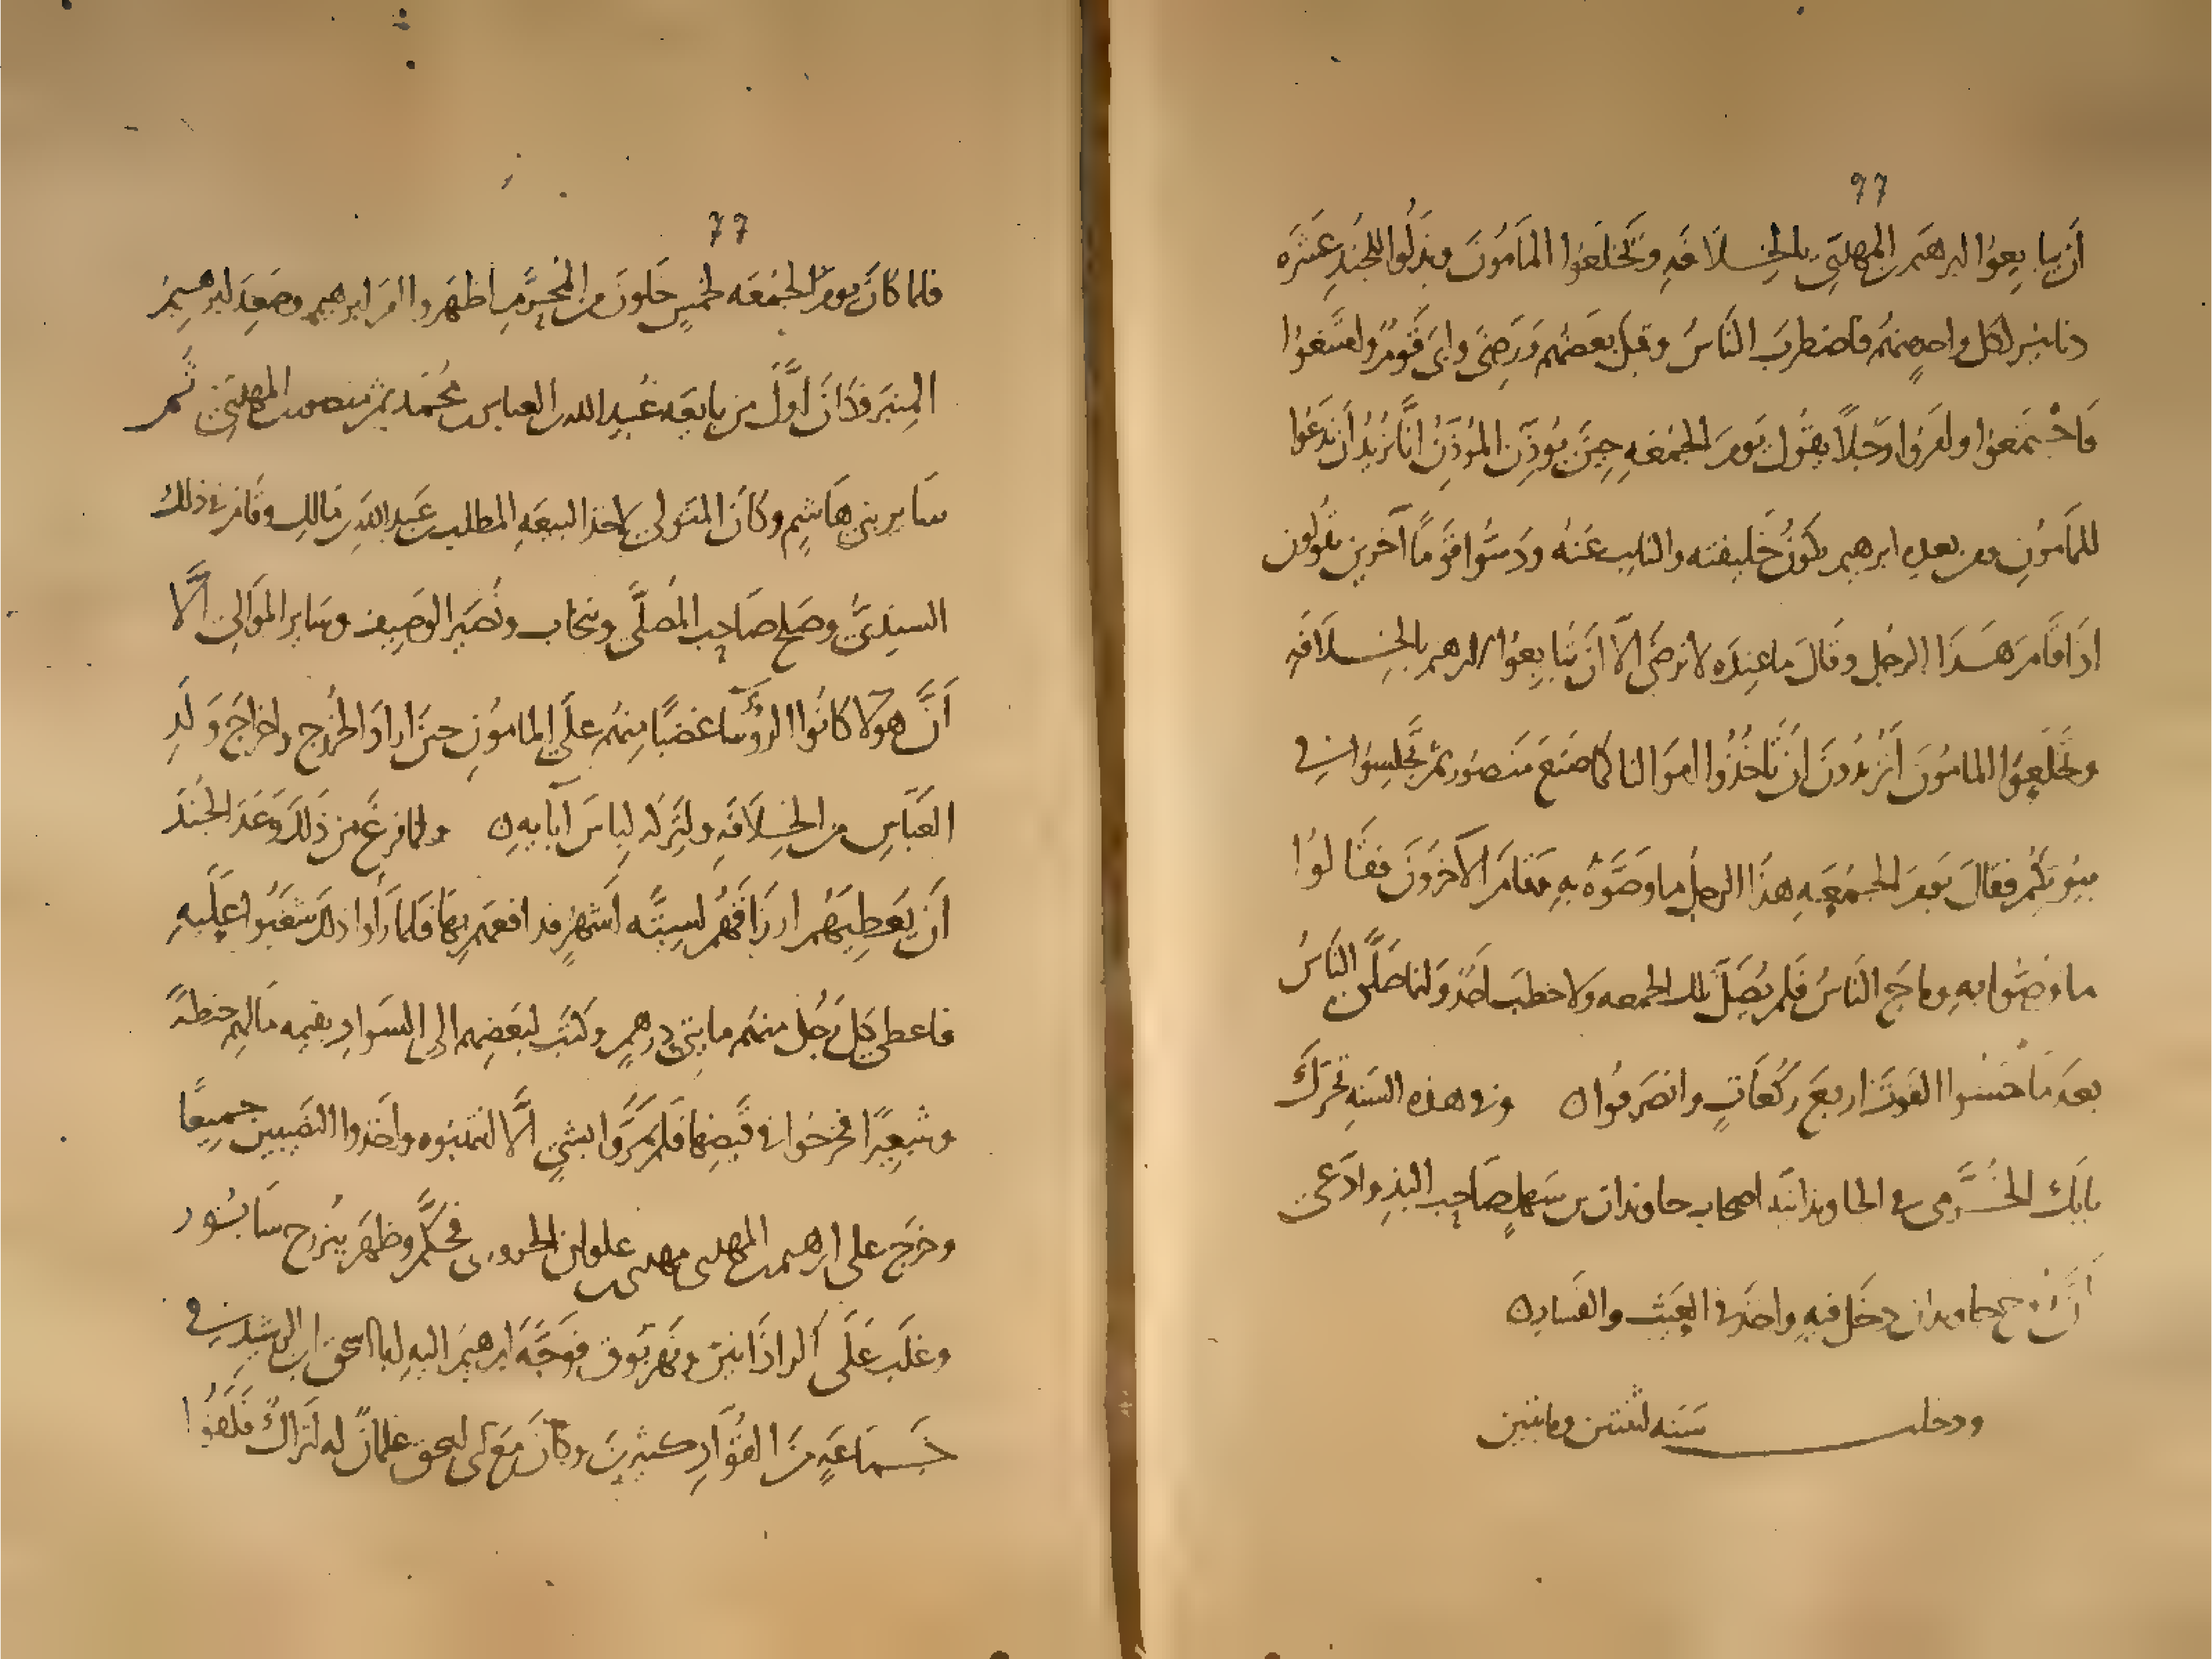 ٩٦
أن يبايعوا ابرهيم بن المهدي بالخلافة وتخلعوا المأمون وبذلوا للجند عشرة
دنانير لكل واحد منهم فاضطرب الناس وقبل بعضهم ورضى وابى قوم
فاجتمعوا وامروا رجلا يقول يوم الجمعه حين يوذن الموذن انا نريد ان ندعوا
للمأمون ومن بعده ابرهيم يكون خليفته والنايب عنه ودسوا قوما آخرين يقولون
اذا قام هذا الرجل وقال ما عنده لا نرضى الا ان تبايعوا لابرهيم بالخلافه
وتخلعوا المامون أتريدون ان تأخذوا اموالنا كما صنع منصور ثم تجلسوا في
بيوتكم فقال يوم الجمعه هذا الرجل ما وصوه به وقام الآخرون فقالوا
ما وصوا به وماج الناس فلم يصل تلك الجمعه ولا خطب احد وانما صلى الناس
بعد ما خشوا الفوت اربع ركعات وانصرفوا ه وفي هذه السنه تحرك
بابك الخرمى في الجاويذانيه اصحاب جاويذان بن سهل صاحب البذ وادعى
أن روح جاويدان دخل فيه واخذ في العيث والفساد ه
ودخلت سنه اثنتين ومايتين
٦٦
فلما كان يوم الجمعه لخمس خلون من المحرم اظهروا امر ابرهيم وصعد ابرهيم
المنبر فكان اول من بايعه عبيد الله بن العباس بن محمد ثم منصور بن المهدي ثم
ساير بني هاشم وكان المتولى لاخذ البيعه المطلب بن عبد الله بن مالك وقام في ذلك
السندى وصلح صاحب المصلى ونصير الوصيف وساير الموالى الا
أن هولا كانوا الرؤسا غضبا منهم على المامون حين اراد اخراج ولد
العباس من الخلافه ولتركه لباس آبايه ه ولما فرغ من ذلك وعد الجند
أن يعطيهم ارزاقهم لستة اشهر فدافعهم بها فلما رأوا ذلك شغبوا عليه
فاعطى كل رجل منهم مايتي درهم وكتب لبعضهم الى السواد بقيمه مالهم حنطة
وشعيرا فخرجوا في قبضها فلم يمروا بشي الا انتهبوه واخذوا النصيبين جميعا
وخرج على ابرهيم بن المهدى مهدى بن علوان الحرورى فحكم وظهر ببزرج سابور
وغلب على الراذانين ونهر بوق فوجه ابرهيم اليه ابا اسحق ابن الرشيد في
جماعة من القواد كثيرين وكان مع ابى اسحق غلمان له اتراك فلقوا